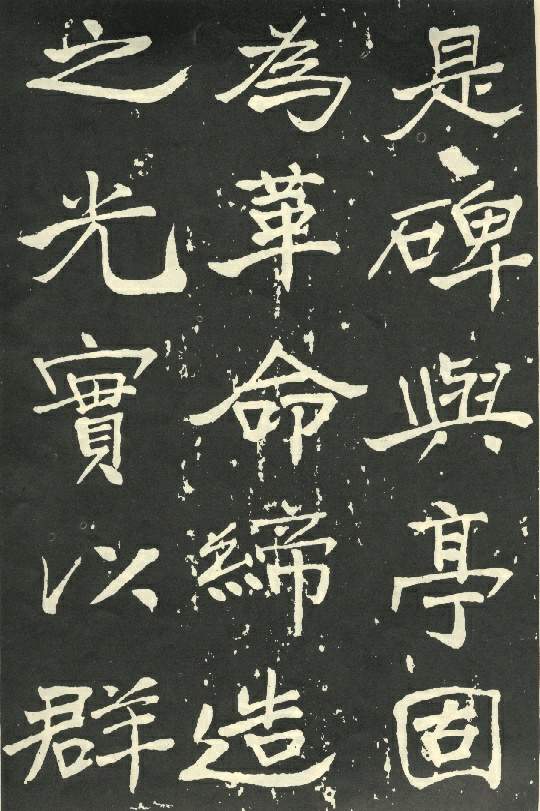 是碑與亭固
為革命締造
之光實以群